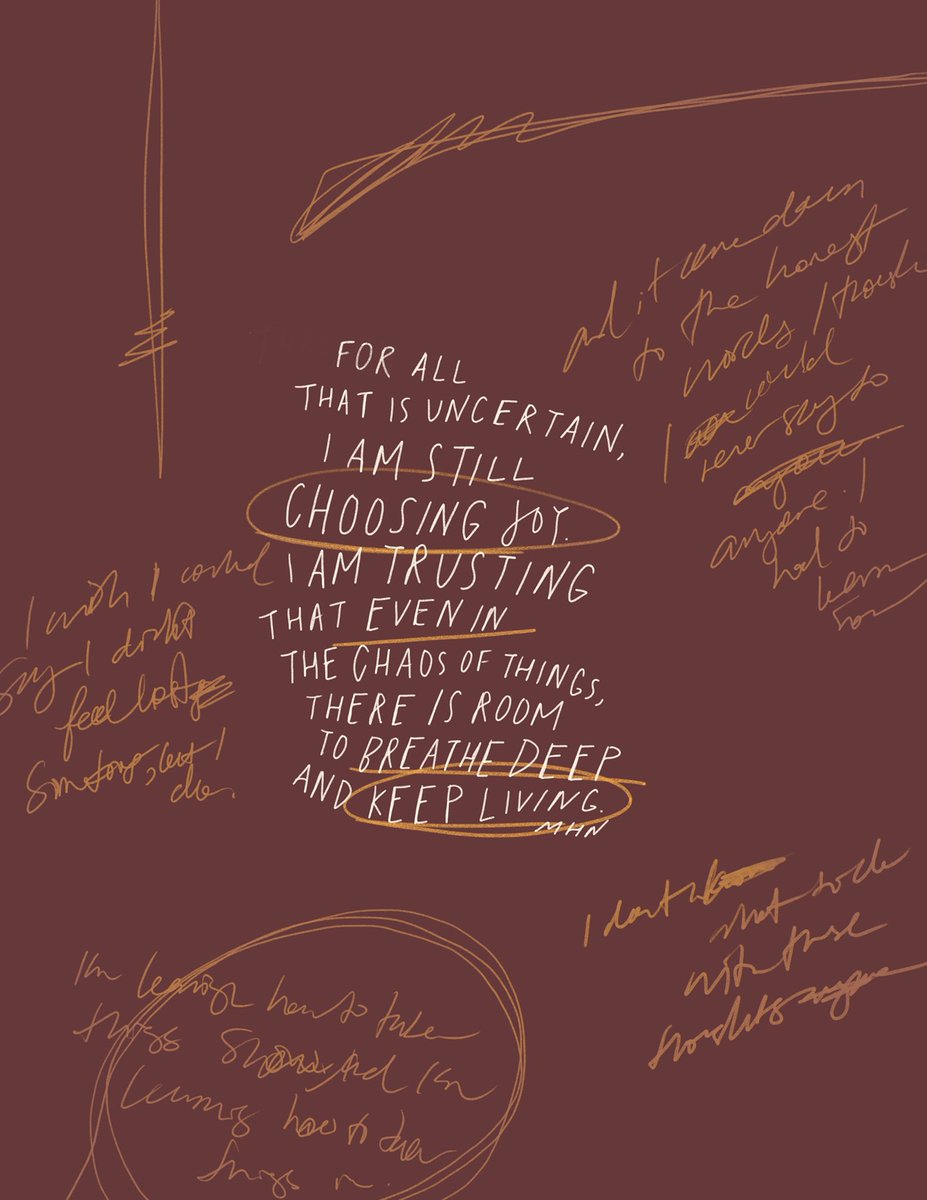 FOR ALL
THAT IS UNCERTAIN,
I AM STILL
CHOOSING JOY.
I AM TRUSTING
THAT EVEN IN
THE CHAOS OF THINGS,
THERE IS ROOM
TO BREATHE DEEP
AND KEEP LIVING.
MHN
and it came down
to the honest
words I
I would
never say to
anyone. I
had to
learn
I wish I could
say I didn't
feel lost
sometimes, but I
do.
I don't
what to do
with these
thoughts
I'm learning how to take
things and I'm
learning how to
things in.